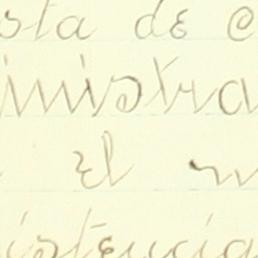 sta de
ministra
El
istencia